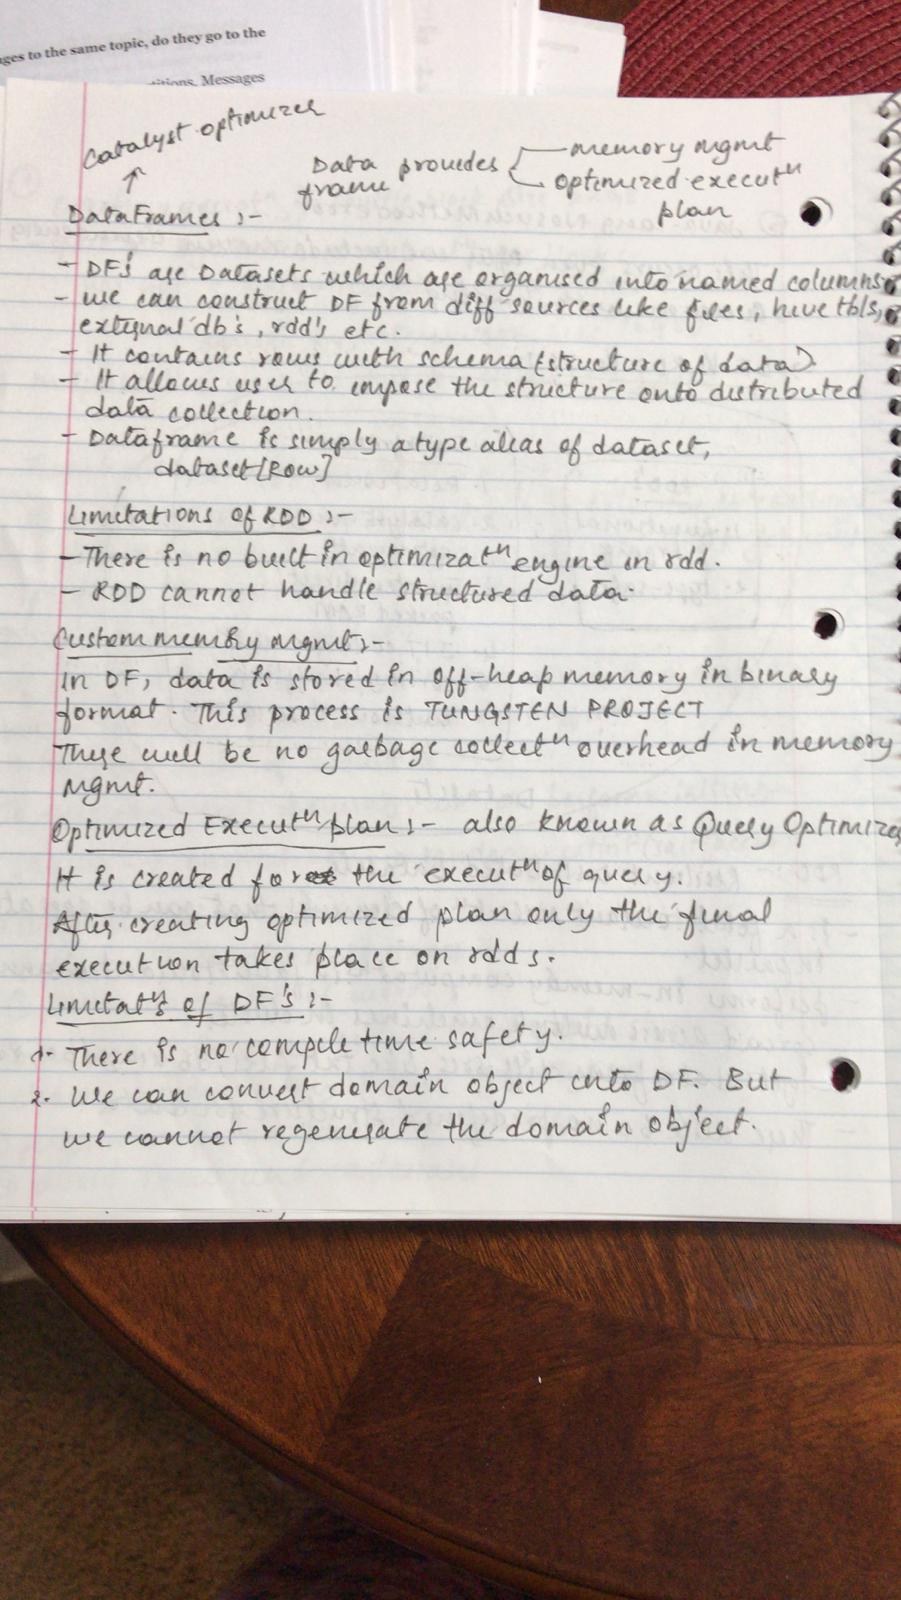 ges to the same topic, do they go to the
Messages
Catalyst optimizer
Data provides memory mgmt
frame optimized executn
plan
DataFrames :-
- DF's are Datasets which are organised into named columns
- we can construct DF from diff sources like files, hive tbls,
external db's, rdd's etc.
- It contains rows with schema (structure of data)
- It allows user to impose the structure onto distributed
data collection.
- Dataframe is simply a type alias of dataset,
dataset[Row]
Limitations of RDD :-
- There is no built in optimizatn engine in rdd.
- RDD cannot handle structured data.
Custom memory mgmt :-
In DF, data is stored in off-heap memory in binary
format. This process is TUNGSTEN PROJECT
There will be no garbage collectn overhead in memory
mgmt.
Optimized Executn plan :- also known as Query Optimizer
It is created for the executn of query.
After creating optimized plan only the final
execution takes place on rdds.
Limitatns of DF's :-
1. There is no compile time safety.
2. We can convert domain object into DF. But
we cannot regenerate the domain object.